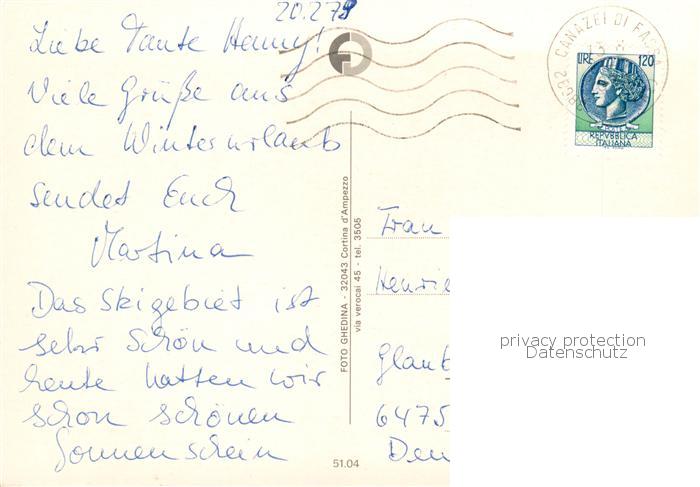 20.2.79
Liebe Tante Henny!
Viele Grüße aus
dem Winterurlaub
sendet Euch
Martina
Das Skigebiet ist
sehr schön und
heute hatten wir
schon schönen
Sonnenschein
FOTO GHEDINA - 32043 Cortina d'Ampezzo
via verocai 45 - tel. 3505
51.04
CANAZEI DI FASSA
LIRE 120
REPVBBLICA
ITALIANA
Frau
Henrie
Glaub
6475
Deu
privacy protection
Datenschutz